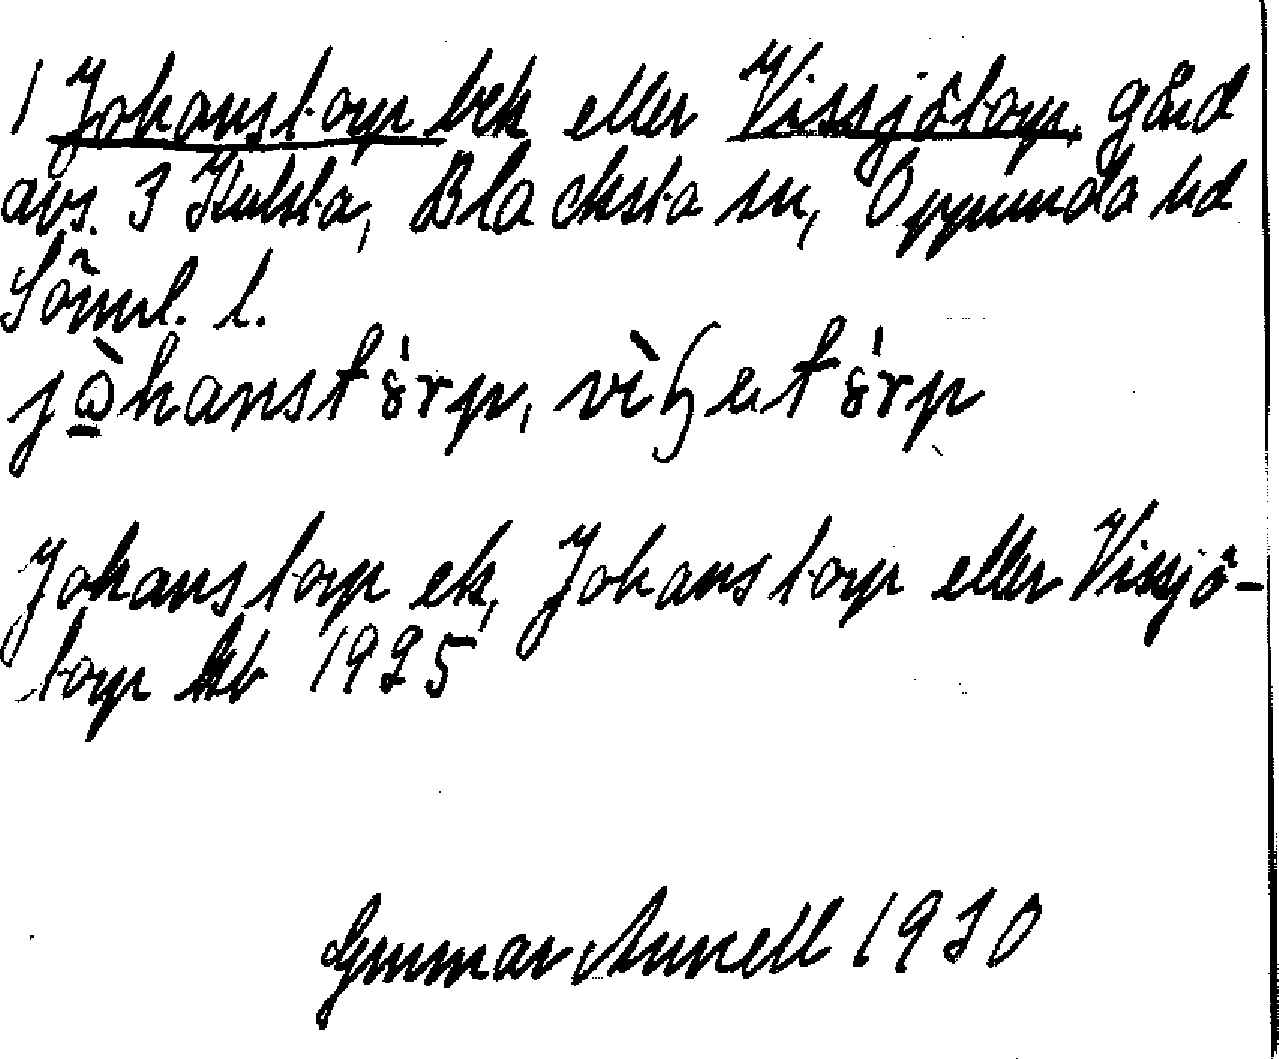 1 Johanstorp bek eller Vissjötorp, gård
avs. 3 Hulsta, Blacksta sn, Oppunda hd
Söml. l.
Johanstorp ek, Johanstorp eller Vissjö-
torp hb 1925
Gunnar Annell 1930